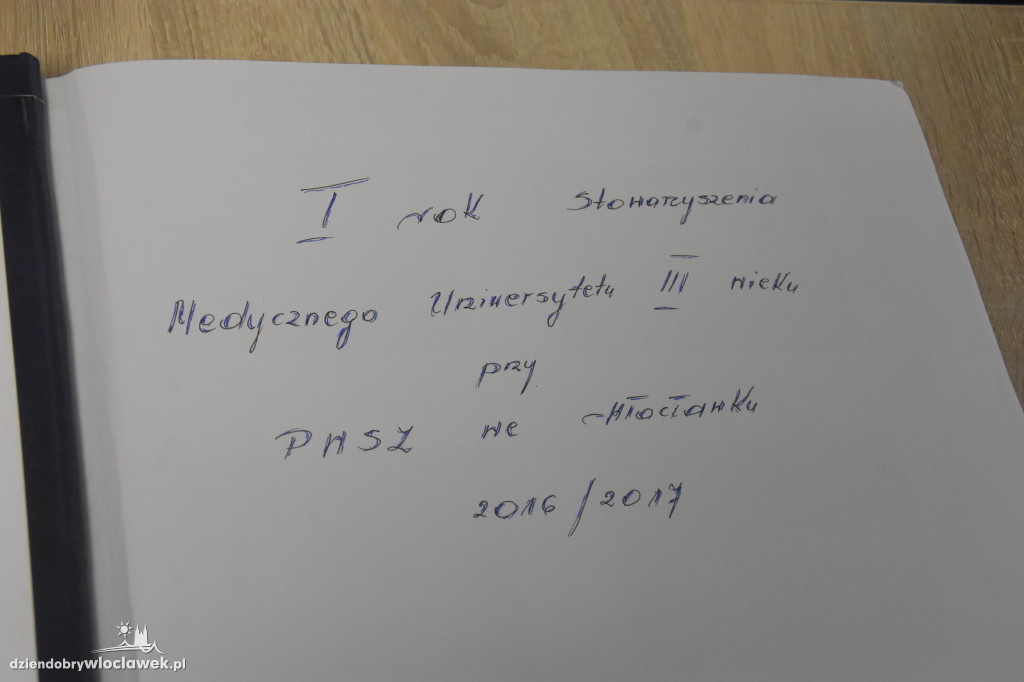 I rok Stowarzyszenia
Medycznego Uniwersytetu III wieku
przy
PWSZ we Włocławku
2016/2017
dziendobrywloclawek.pl